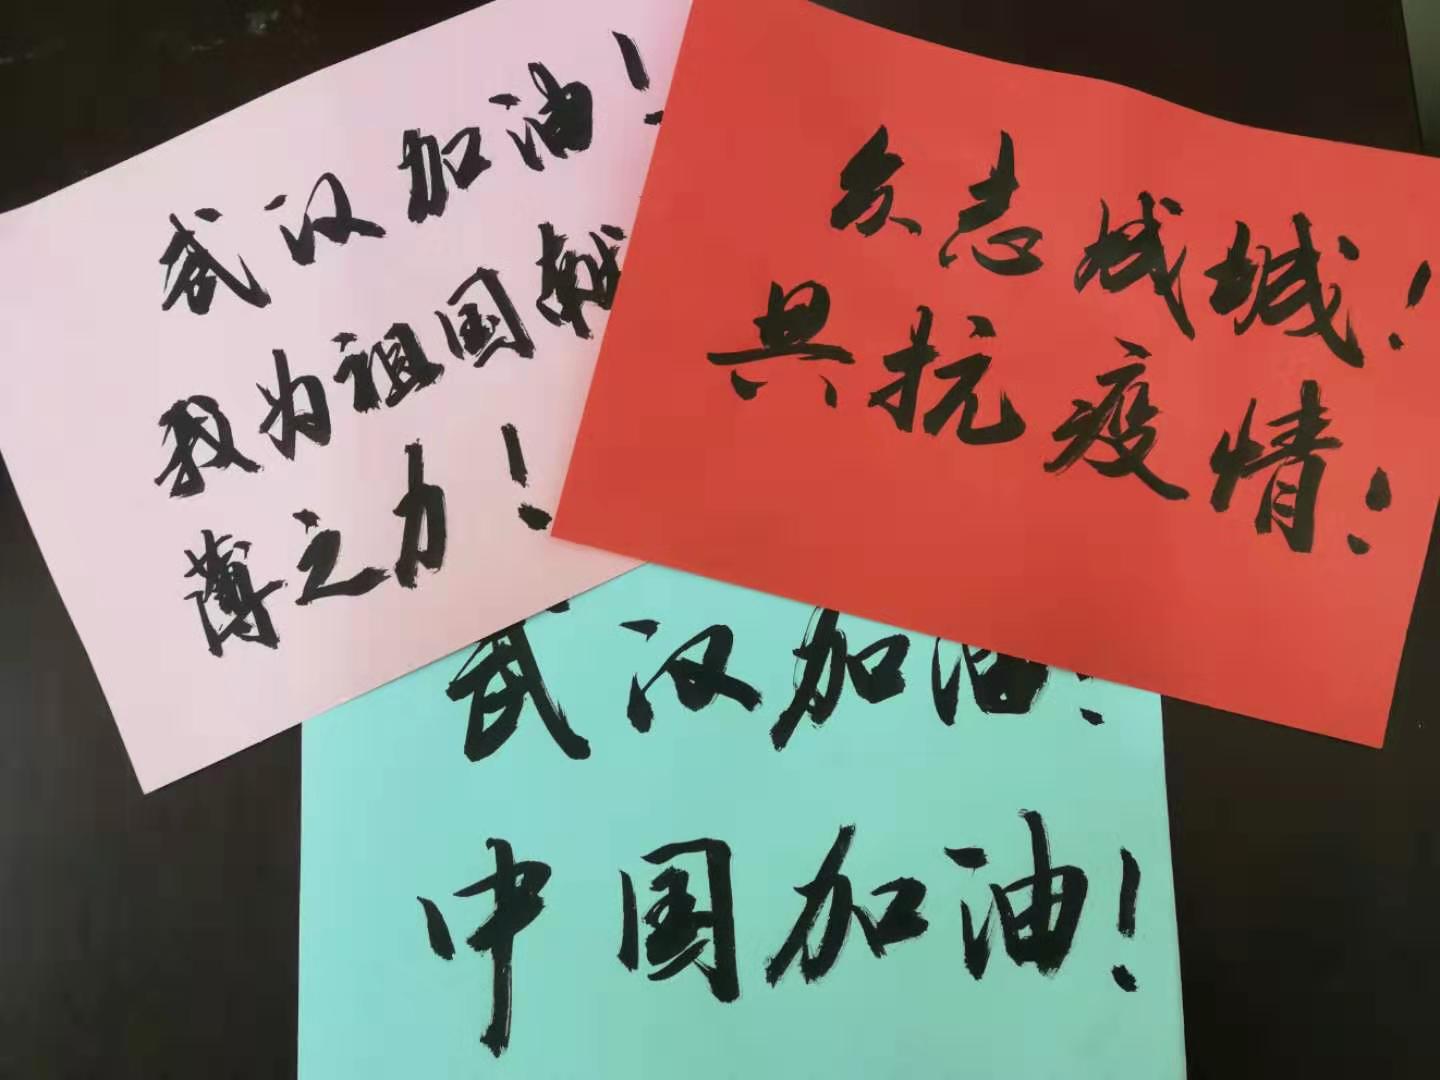 武汉加油！
我为祖国献
薄之力！
众志成城！
共抗疫情！
武汉加油！
中国加油！